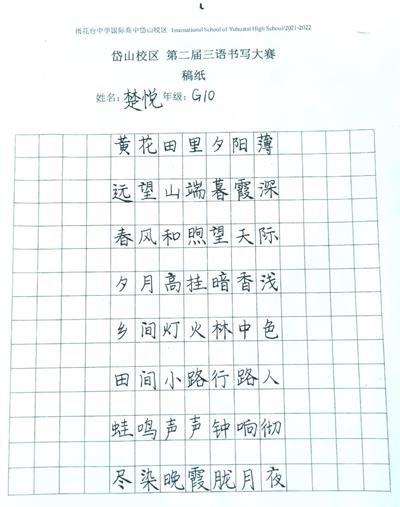 雨花台中学国际高中岱山校区 International School of Yuhuatai High School/2021-2022
岱山校区 第二届三语书写大赛
稿纸
姓名：楚悦 年级：G10
黄花田里夕阳薄
远望山端暮霞深
春风和煦望天际
夕月高挂暗香浅
乡间灯火林中色
田间小路行路人
蛙鸣声声钟响彻
尽染晚霞胧月夜